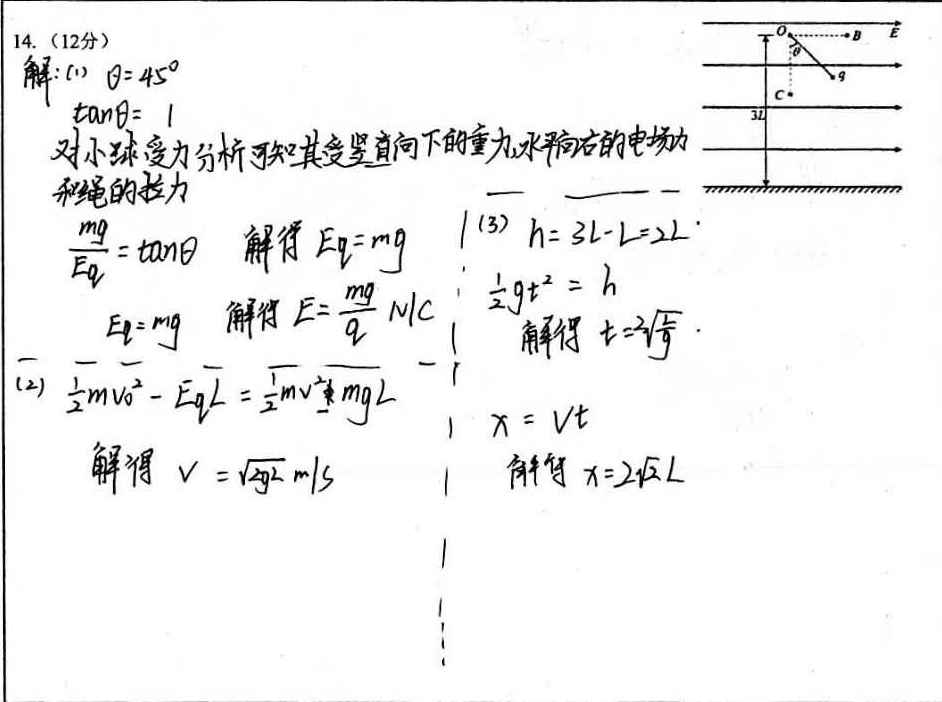 14.（12分）
解：(1) θ=45°
tanθ= 1
对小球受力分析可知其受竖直向下的重力，水平向右的电场力
和绳的拉力
mg/Eq = tanθ 解得 Eq=mg
Eq=mg 解得 E=mg/q N/C
(2) ½mv₀² - EqL = ½mv² + mgL
解得 v = √2gL m/s
(3) h= 3L-L=2L
½gt² = h
解得 t=2√(L/g)
x = vt
解得 x=2√2L
O B E
θ
q
C
3L